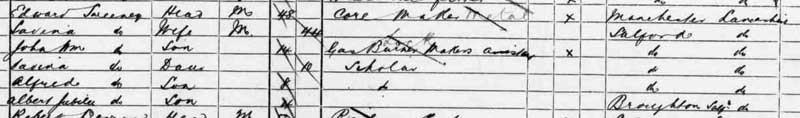 Edward Sweeney Head M 48 Core Maker Metal x Manchester Lancashire
Lavinia do Wife M 44 Salford do
John Wm do Son 14 Gas Burner Makers assistant x do do
Lavinia do Daur 10 Scholar do do
Alfred do Son 8 do do do
Albert Jubilee do Son 4 Broughton Salfd do
Robert Head M